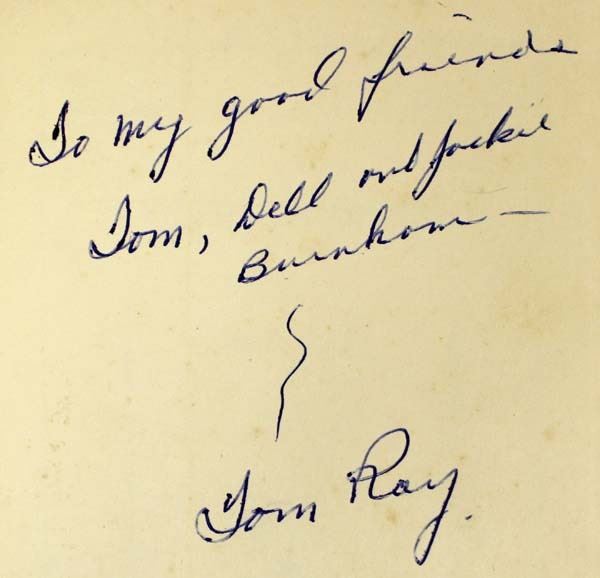 To my good friends
Tom, Dell and Jackie
Burnham —
Tom Ray.